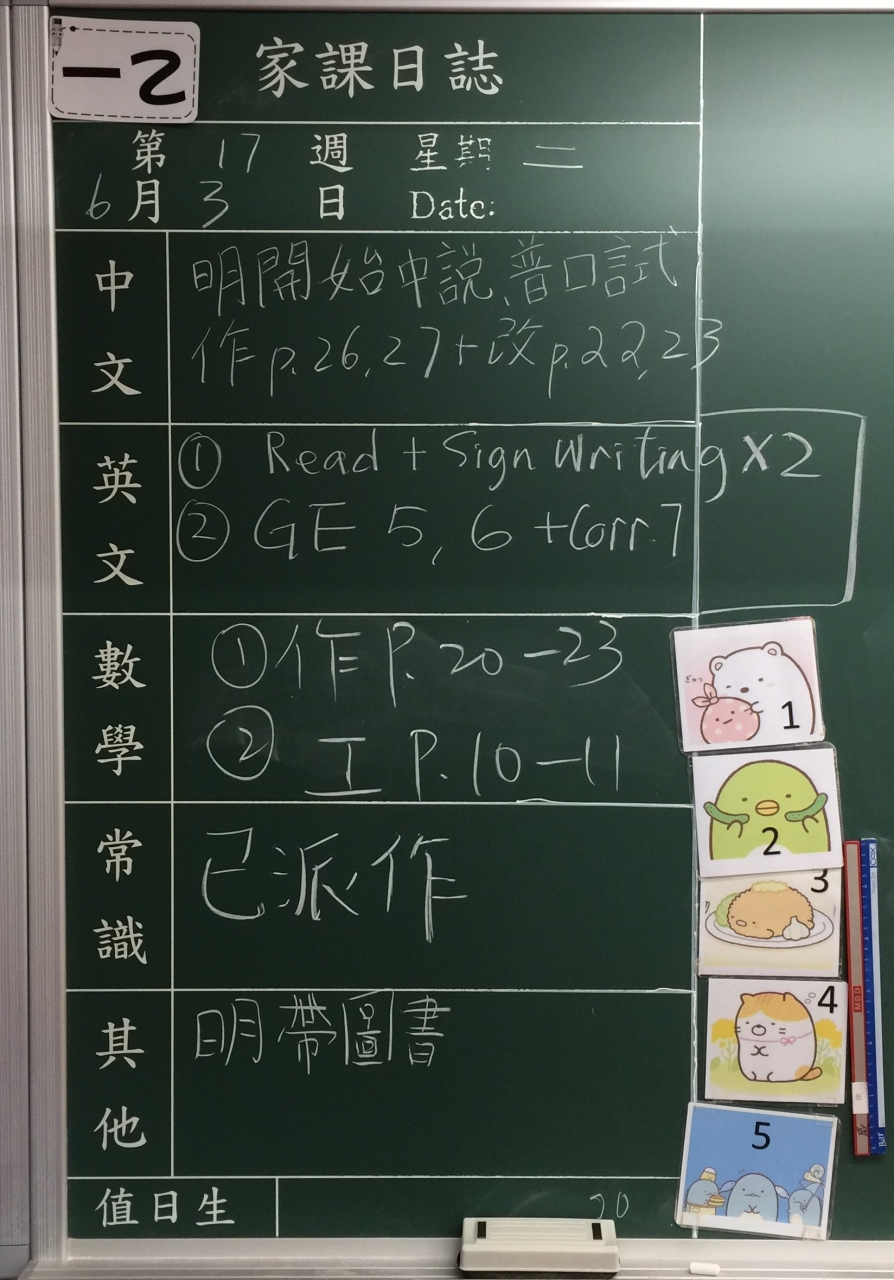 一乙
家課日誌
第 17 週 星期 二
6月 3 日 Date:
中文
明開始中說、普口試
作p.26,27+改p.22,23
英文
① Read + Sign Writing X2
② GE 5, 6 +Corr.7
數學
①作P.20-23
② 工 P.10-11
常識
已派作
其他
明帶圖書
值日生
20
1
2
3
4
5